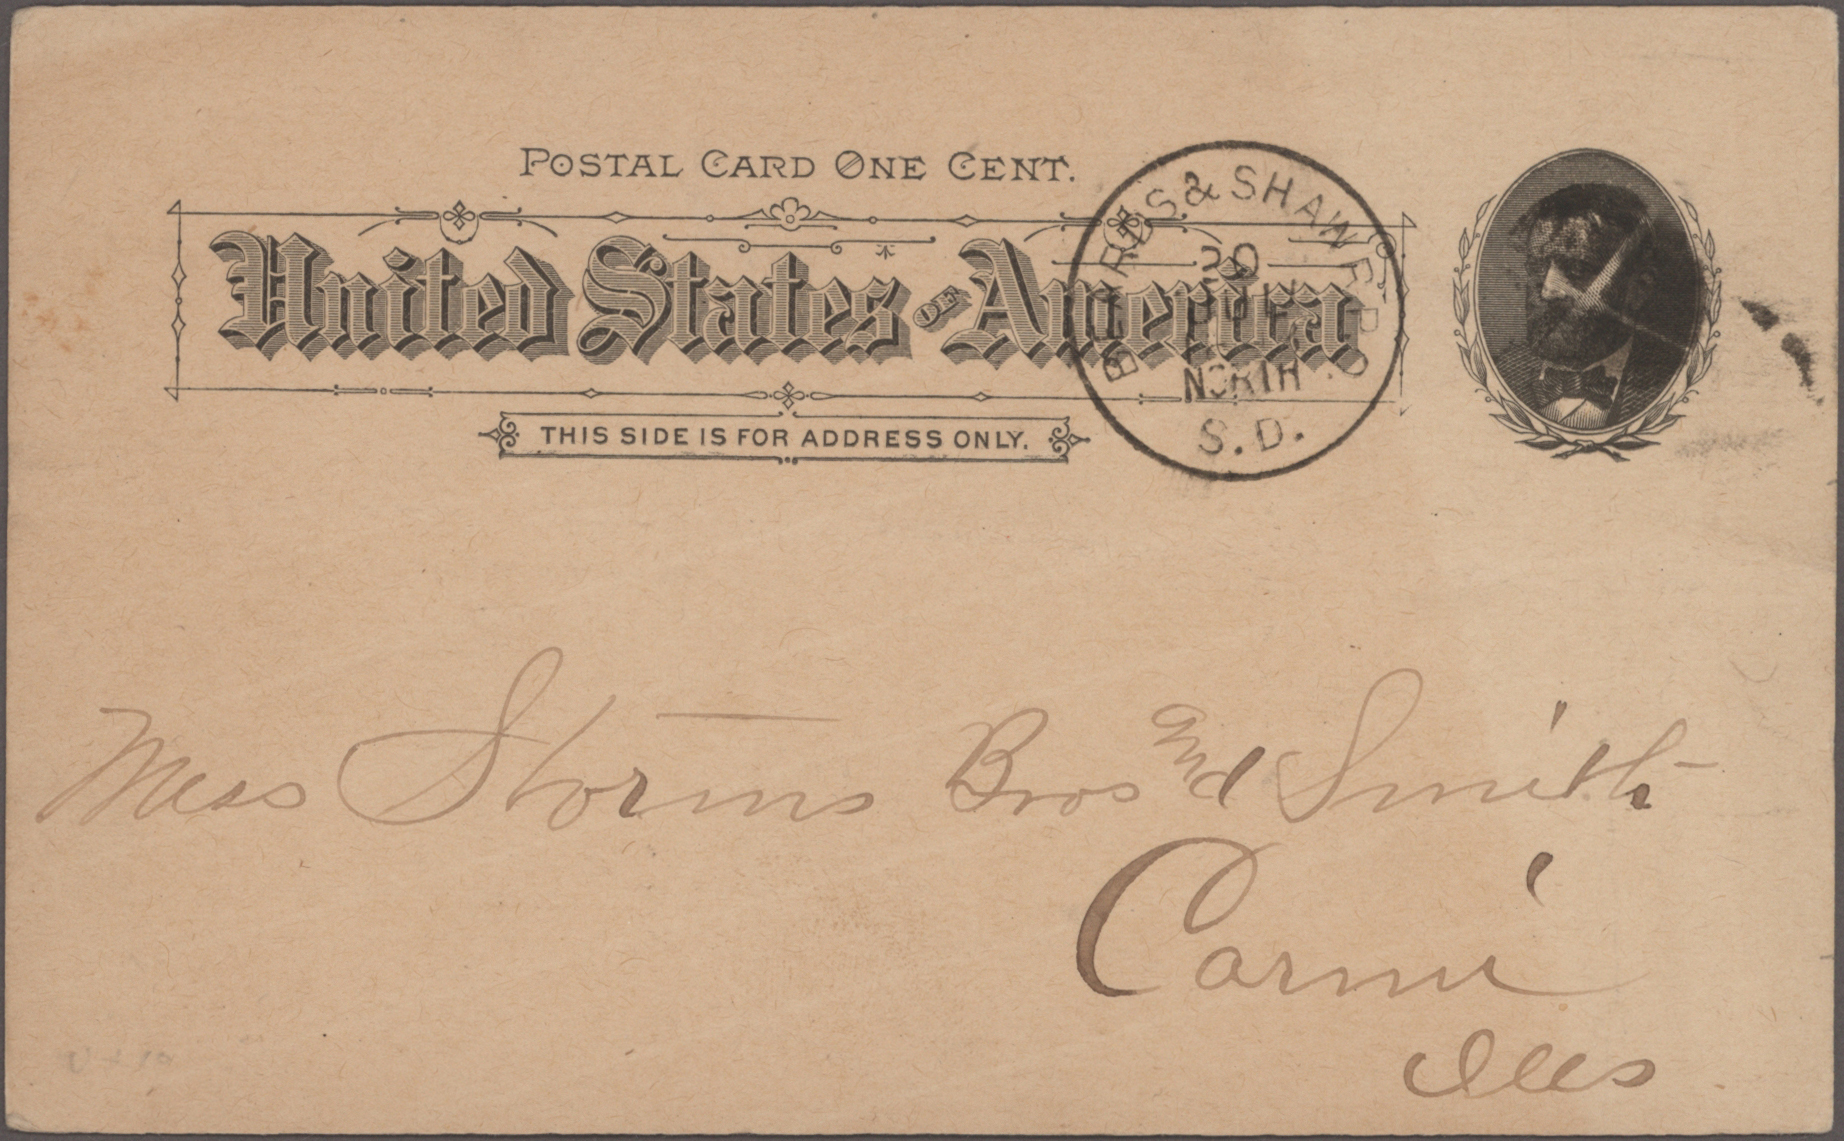 POSTAL CARD ONE CENT.
United States OF America
THIS SIDE IS FOR ADDRESS ONLY.
BEARDS & SHAW R.P.O.
20
JUL
NORTH
S.D.
Mess Storms Bros and Smith
Carmi
Ills